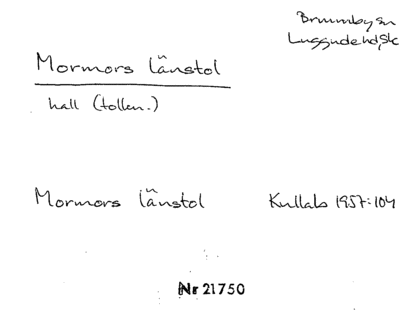 Brunnby sn
Luggude hd, Sk
Mormors länstol
hall (tollen.)
Mormors länstol Kullabs 1957:104
Nr 21750